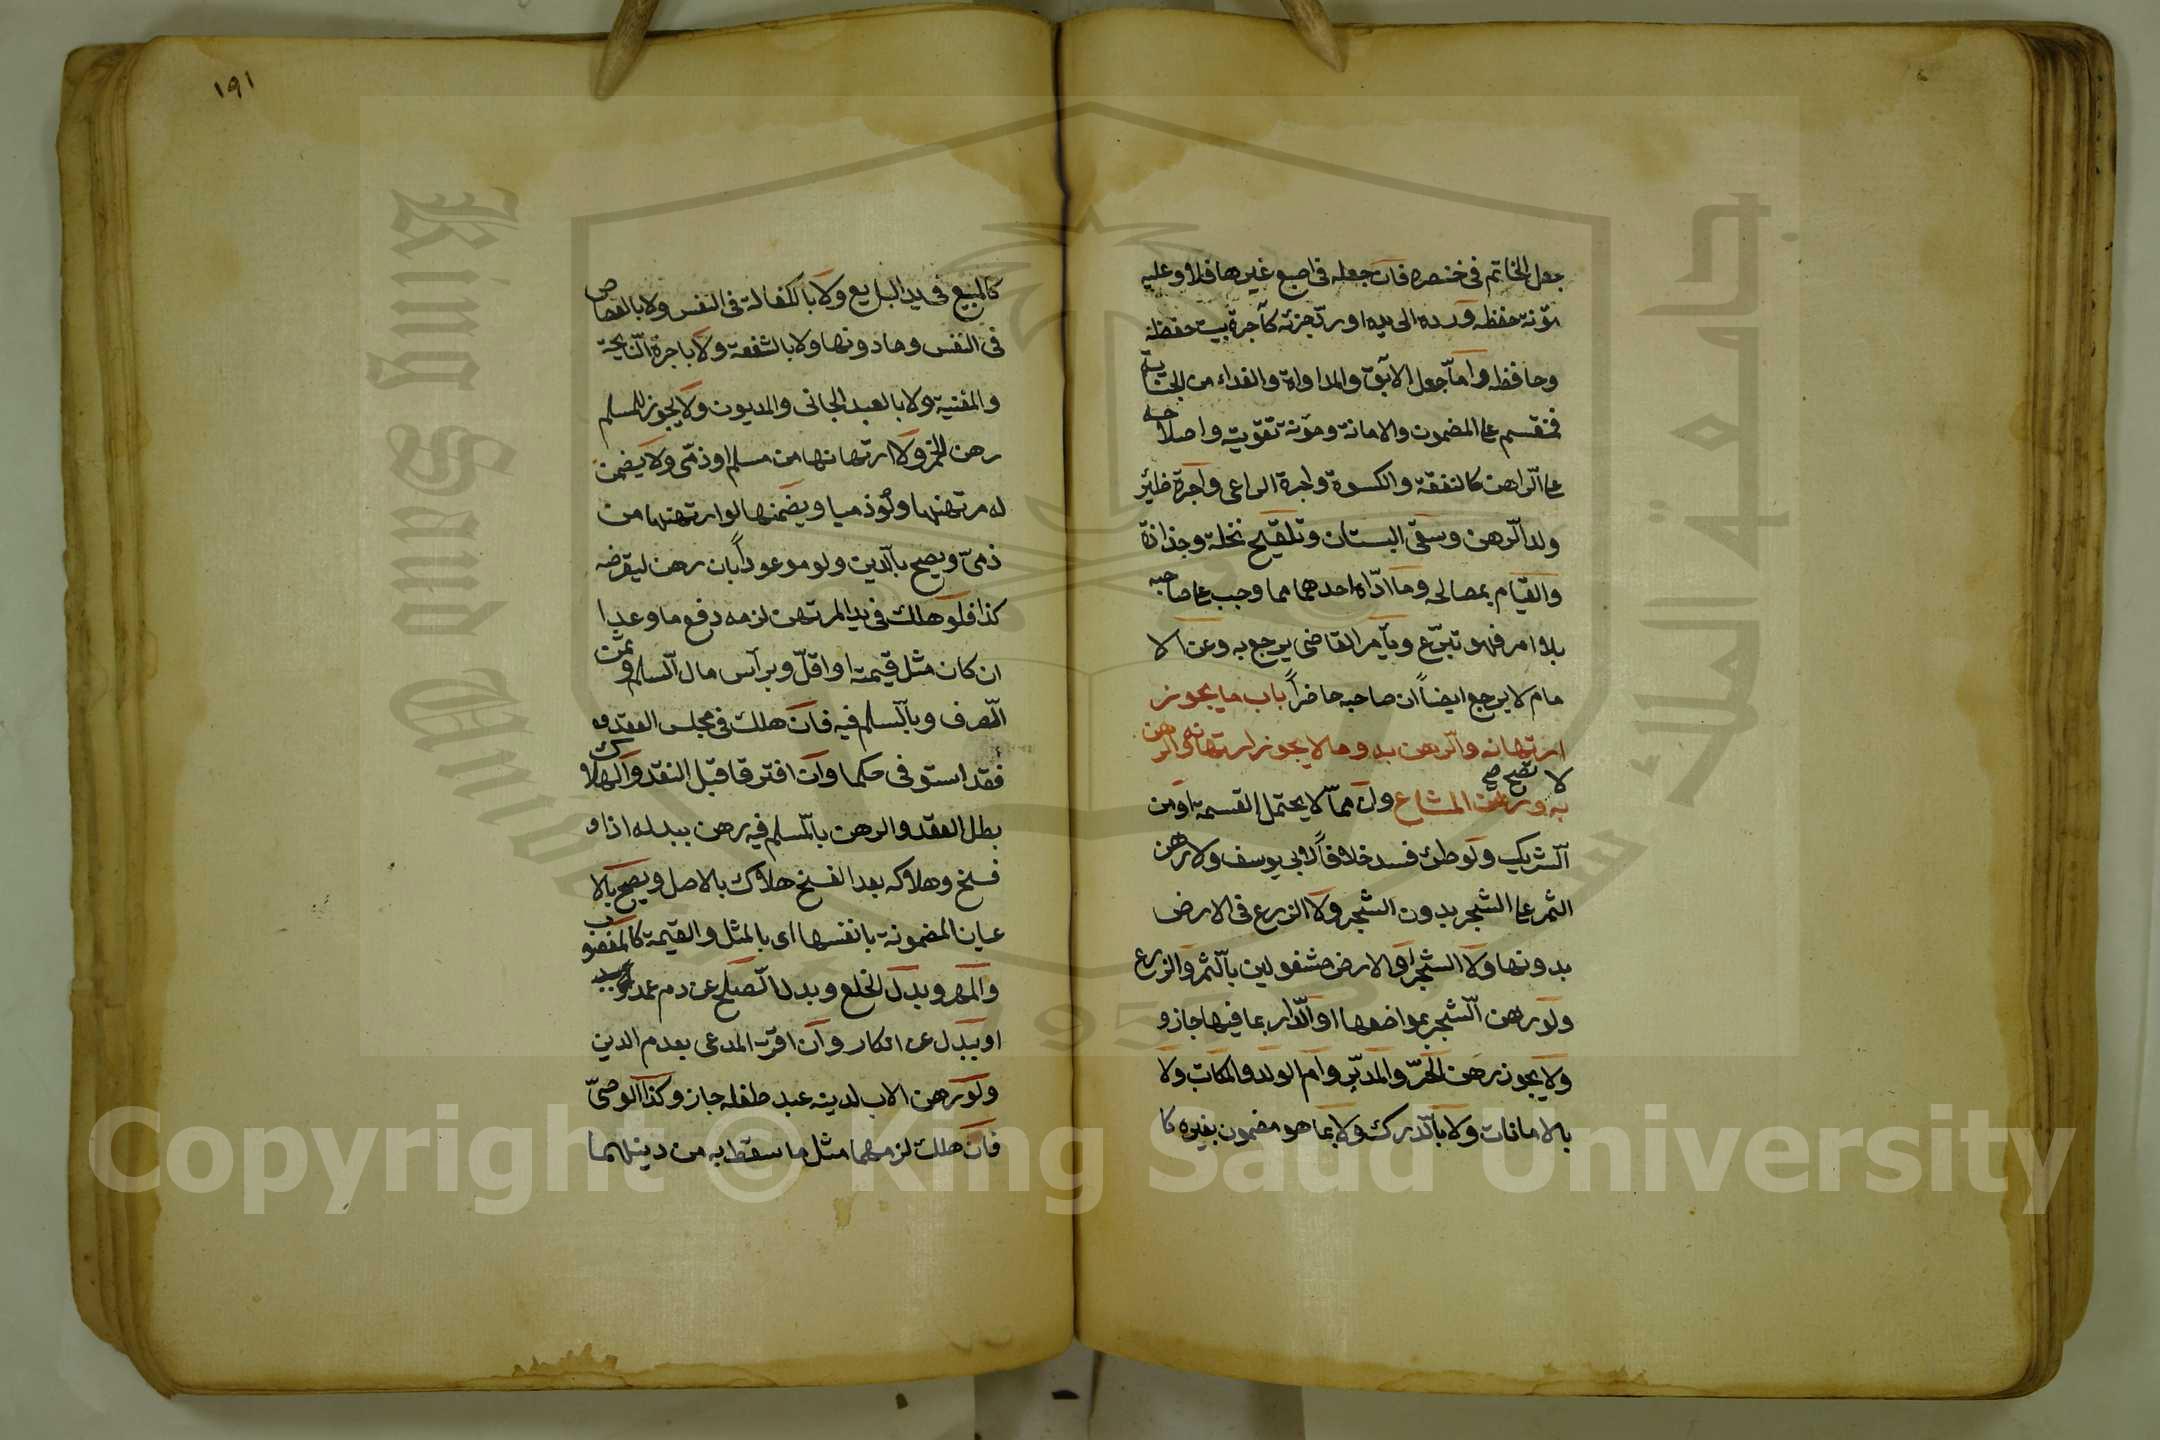 جعل الخاتم في خنصره فان جعله في اصبع غيرها فلا وعليه
مؤنة حفظه ورده الى يده او رد جزئه كأجرة بيت حفظه
وحافظه واما جعل الابق والمداواة والفداء من الجناية
فمنقسم على المضمون والامانة ومؤنة تقويته واصلاحه
على الراهن كالنفقة والكسوة واجرة الراعى واجرة ظئر
ولد الرهن وسقى البستان وتلقيح نخله وجذاذة
والقيام بمصالحه وما اداه احدهما مما وجب على صاحبه
بلا امر فهو تبرع وبأمر القاضى يرجع به وعن الا
مام لا يرجع ايضاً ان صاحبه حاضراً باب ما يجوز
ارتهانه والرهن به وما لا يجوز ارتهانه والرهن
به ورهن المشاع لا يصح صح وان مما لا يحتمل القسمة او من
الشريك ولو طرئ فسد خلافاً لابى يوسف ولا رهن
الثمر على الشجر بدون الشجر ولا الزرع فى الارض
بدونها ولا الشجر او الارض مشغولين بالثمر والزرع
ولو رهن الشجر بمواضعها او الدار بما فيها جاز و
ولا يجوز رهن الحر والمدبر وام الولد والمكاتب ولا
بالامانات ولا بالدرك ولا بما هو مضمون بغيره كا
١٩١
كالمبيع فى يد البايع ولا بالكفالة فى النفس ولا بالقصاص
فى النفس وما دونها ولا بالشفعة ولا باجرة النايحة
والمغنية ولا بالعبد الجانى والمديون ولا يجوز للمسلم
رهن الخمر ولا ارتهانها من مسلم او ذمى ولا يضمن
له مرتهنها ولو ذميا ويضمنها لو ارتهنها من
ذمى ويصح بالدين ولو موعوداً بان رهن ليقرضه
كذا فلو هلك فى يد المرتهن لزمه دفع ما وعدا
ان كان مثل قيمته او اقل وبرأس مال السلم وثمن
الصرف وبالمسلم فيه فان هلك فى مجلس العقد
فقد استوفى حكما وان افترقا قبل النقد والهلاك
بطل العقد والرهن بالمسلم فيه رهن ببدله اذا و
فسخ وهلاكه بعد الفسخ هلاك بالاصل ويصح بالا
عيان المضمونة بانفسها اى بالمثل والقيمة كالمغصوب
والمهر وبدل الخلع وبدل الصلح عن دم عمد
او ببدل عن انكار وان اقر المدعى بعدم الدين
ولو رهن الاب لدينه عبد طفله جاز وكذا الوصىّ
فان هلك لزمهما مثل ما سقط به من دينهما
جامعة الملك سعود
King Saud University
1957
Copyright © King Saud University